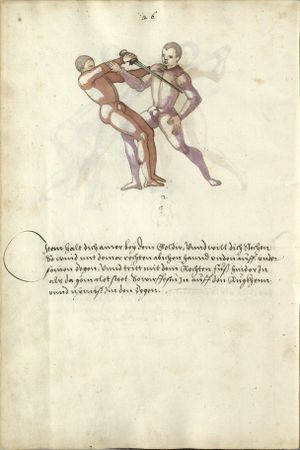 26
Item halt dich ainer bey dem Goller, Vnnd will dich stechen
So wind mit deiner rechten hannd vnden auff vnder
seinen degen, Vnnd tritt mit dem Rechten fuß hinder In
als da gemalet stet So wirffestu In auff den Rugkhen
vnnd nimbst Im den Degen.